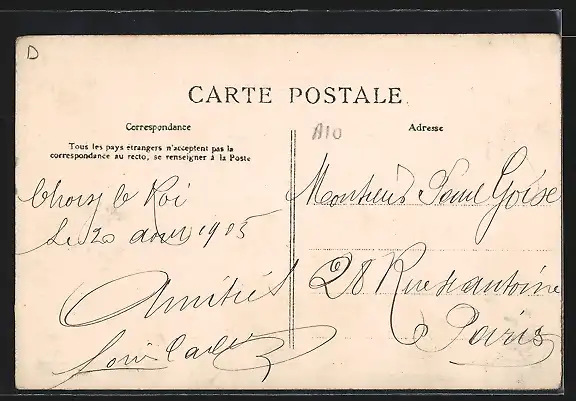 D
CARTE POSTALE
Correspondance
A10
Adresse
Tous les pays étrangers n'acceptent pas la
correspondance au recto, se renseigner à la Poste
Choisy le Roi
Le 20 aout 1905
Amitiés
Louis
Monsieur Paul
28 Rue St antoine
Paris